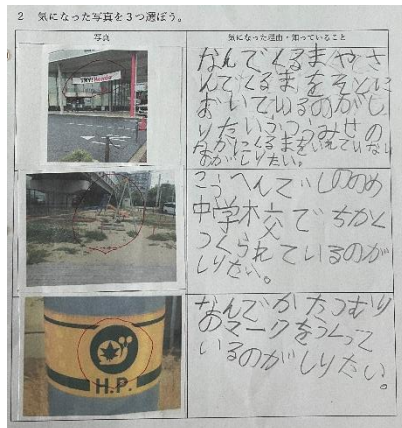 2 気になった写真を3つ選ぼう。
写真
気になった理由・知っていること
なんでくるまやさ
んでくるまをそとに
おいているのがし
りたいふつうみせの
なかにくるまをいれていない
おがしりたい。
こうへんでしののめ
中学校でちかく
つくられているのが
しりたい。
なんでかたつむり
のマークをつくって
いるのがしりたい。
H.P.